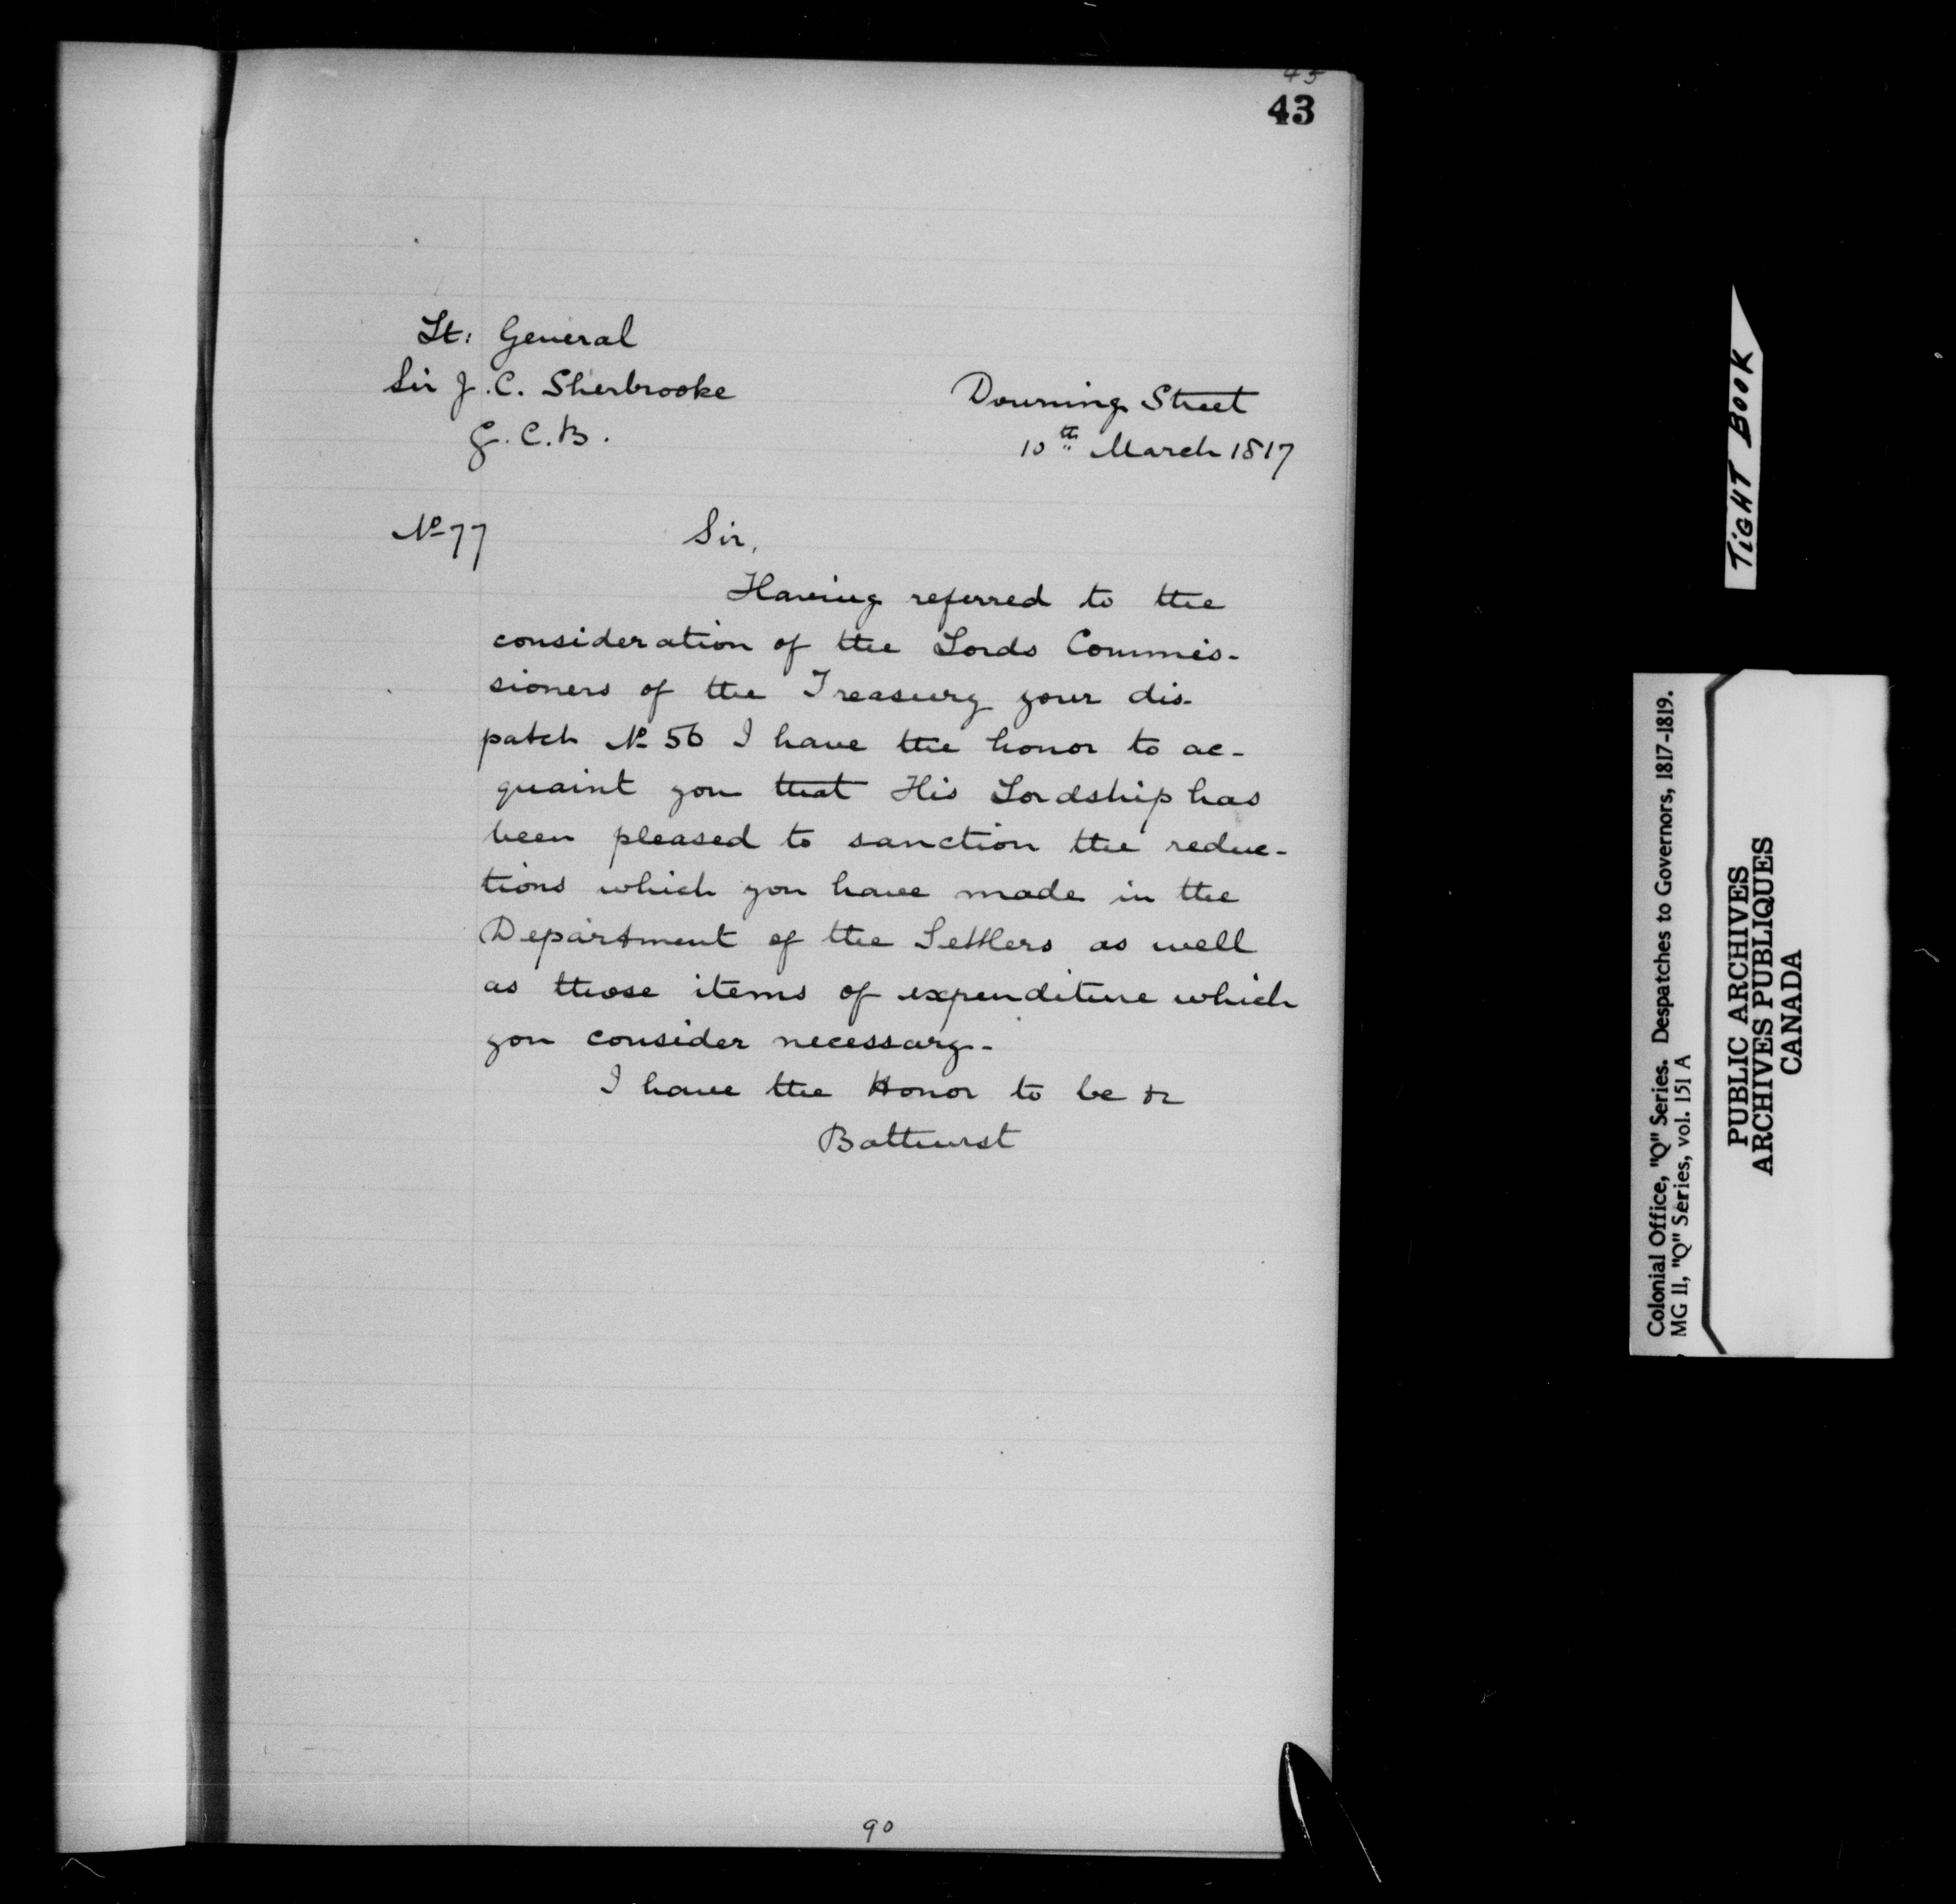 45
43
Lt: General
Sir J. C. Sherbrooke
G. C. B.
Downing Street
10th March 1817
No 77
Sir,
Having referred to the
consideration of the Lords Commis-
sioners of the Treasury your dis-
patch No 56 I have the honor to ac-
quaint you that His Lordship has
been pleased to sanction the reduc-
tions which you have made in the
Department of the Settlers as well
as those items of expenditure which
you consider necessary-
I have the Honor to be &c
Bathurst
90
TIGHT BOOK
Colonial Office, "Q" Series. Despatches to Governors, 1817-1819.
MG 11, "Q" Series, vol. 151 A
PUBLIC ARCHIVES
ARCHIVES PUBLIQUES
CANADA